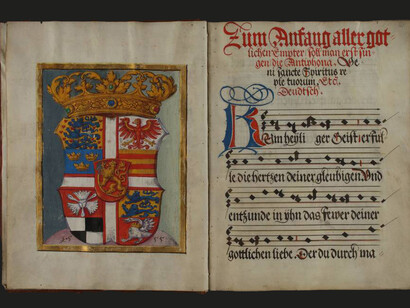 Zum Anfang aller got=
lichen Empter soll man erst sin=
gen die Antiphona. Ve=
ni sancte Spiritus re=
ple tuorum, Etc.
Deudsch.
KOm heyli ger Geist erful
le die hertzen deiner gleubigen Vnd
entzunde in yhn das fewer deiner
gottlichen liebe. Der du durch ma